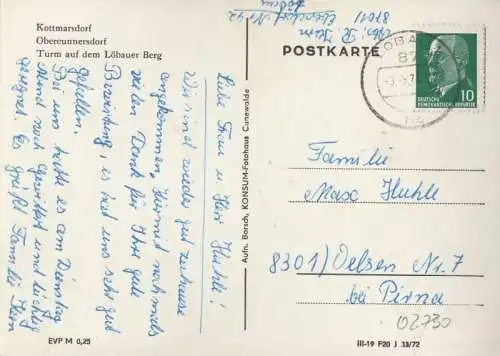 Kottmarsdorf
Obercunnersdorf
Turm auf dem Löbauer Berg
Liebe Frau u Herr Huhle!
Wir sind wieder gut zuhause
angekommen, hiermit nochmals
vielen Dank für Ihre gute
Bewirtung, es hat uns sehr gut
gefallen.
Bei uns hatte es am Dienstag
Abend noch gewittert und tüchtig
geregnet. Es grüßt Familie Kern
Abs. R. Kern
8701
Ebersdorf Nr 42
Löbau
Aufn. Borsch, KONSUM-Fotohaus Cunewalde
POSTKARTE
LÖBAU
87
DEUTSCHE
DEMOKRATISCHE REPUBLIK
10
Familie
Max Huhle
8301) Oelsen Nr. 7
bei Pirna
02730
EVP M 0,25
III-19 P20 J 33/72